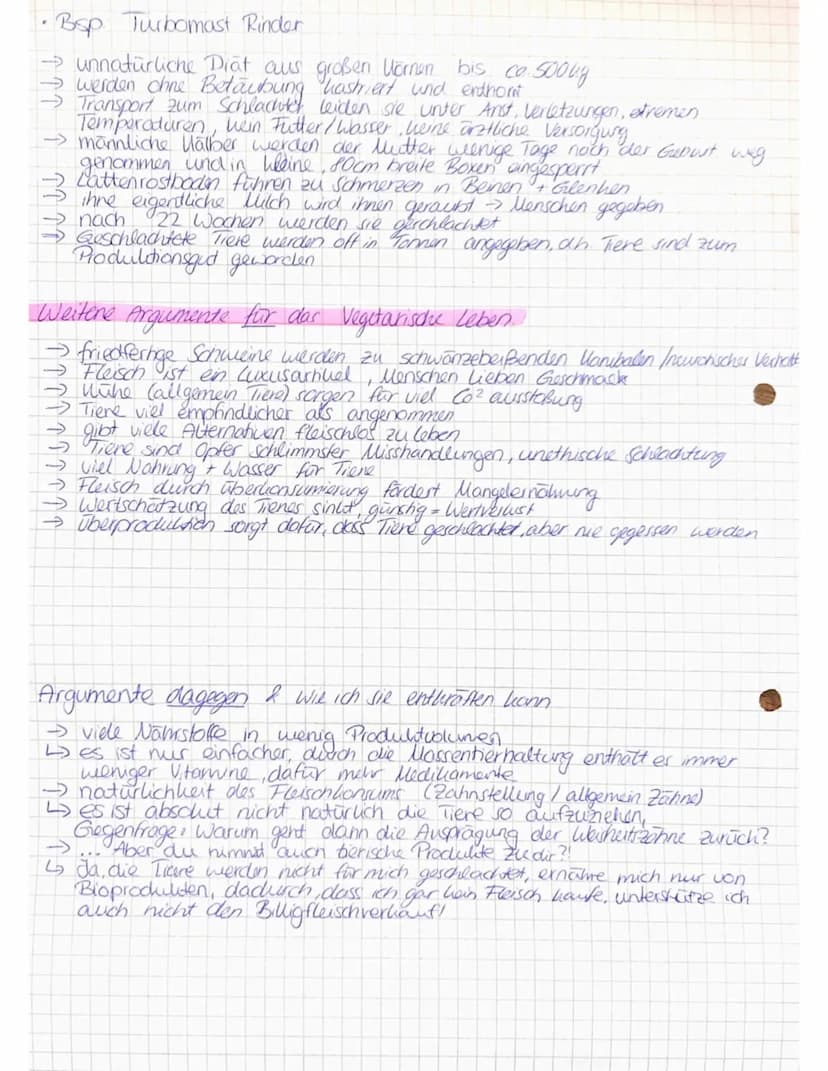 • Bsp. Turbomast Rinder
→ unnatürliche Diät aus großen Körnen bis ca. 500kg
→ werden ohne Betäubung kastriert und enthornt
→ Transport zum Schlachter leiden sie unter Anst, Verletzungen, extremen
Temperaduren, kein Futter/Wasser, keine ärztliche Versorgung
→ männliche Kälber werden der Mutter wenige Tage nach der Geburt weg
genommen und in kleine, 80cm breite Boxen angesperrt
→ Lattenrostboden führen zu Schmerzen in Beinen + Glenken
→ ihne eigendliche Milch wird ihnen geraubt → Menschen gegeben
→ nach 22 Wochen werden sie geschlachtet
→ Geschlachtete Tiere werden oft in Tonnen angegeben, dh. Tiere sind zum
Produktionsgut geworden
Weitere Argumente für das Vegetarische Leben
→ friedfertige Schweine werden zu schwänzebeißenden Kanibalen /neurotisches Verhalt
→ Fleisch ist ein Luxusartikel, Menschen lieben Geschmack
→ Kühe (allgemein Tiere) sorgen für viel Co² ausstoßung
→ Tiere viel empfindlicher als angenommen
→ gibt viele Alternativen fleischlos zu leben
→ Tiere sind Opfer schlimmster Misshandlungen, unethische Schlachtung
→ viel Nahrung + Wasser für Tiere
→ Fleisch durch überkonsumierung fördert Mangelernährung
→ Wertschätzung des Tieres sinkt, günstig = Wertverlust
→ überproduktion sorgt dafür, dass Tiere geschlachtet, aber nie gegessen werden
Argumente dagegen & wie ich sie entkräften kann
→ viele Nährstoffe in wenig Produktvolumen
↳ es ist nur einfacher, durch die Massentierhaltung enthält es immer
weniger Vitamine, dafür mehr Medikamente
→ natürlichkeit des Fleischkonsums (Zahnstellung / allgemein Zähne)
↳ es ist absolut nicht natürlich die Tiere so aufzuziehen,
Gegenfrage: Warum geht dann die Ausprägung der Weisheitzähne zurück?
→ ... Aber du nimmst auch tierische Produkte zu dir?!
↳ Ja, die Tiere werden nicht für mich geschlachtet, ernähre mich nur von
Bioprodukten, dadurch, dass ich gar kein Fleisch kaufe, unterstütze ich
auch nicht den Billigfleischverkauf!